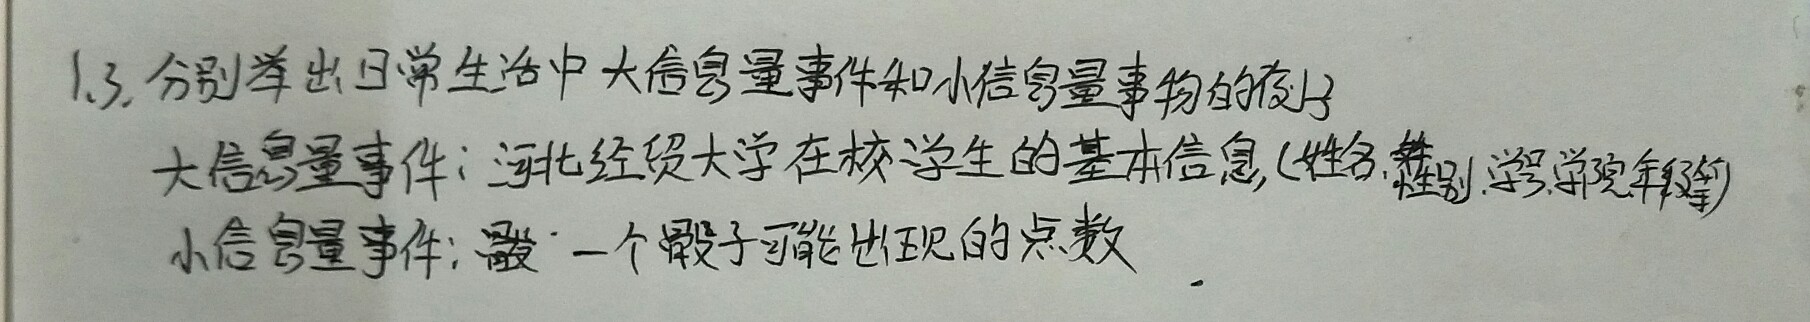 1.3. 分别举出日常生活中大信息量事件和小信息量事物的例子
大信息量事件：河北经贸大学在校学生的基本信息,(姓名.性别.学号.学院.年级等)
小信息量事件：一个骰子可能出现的点数.